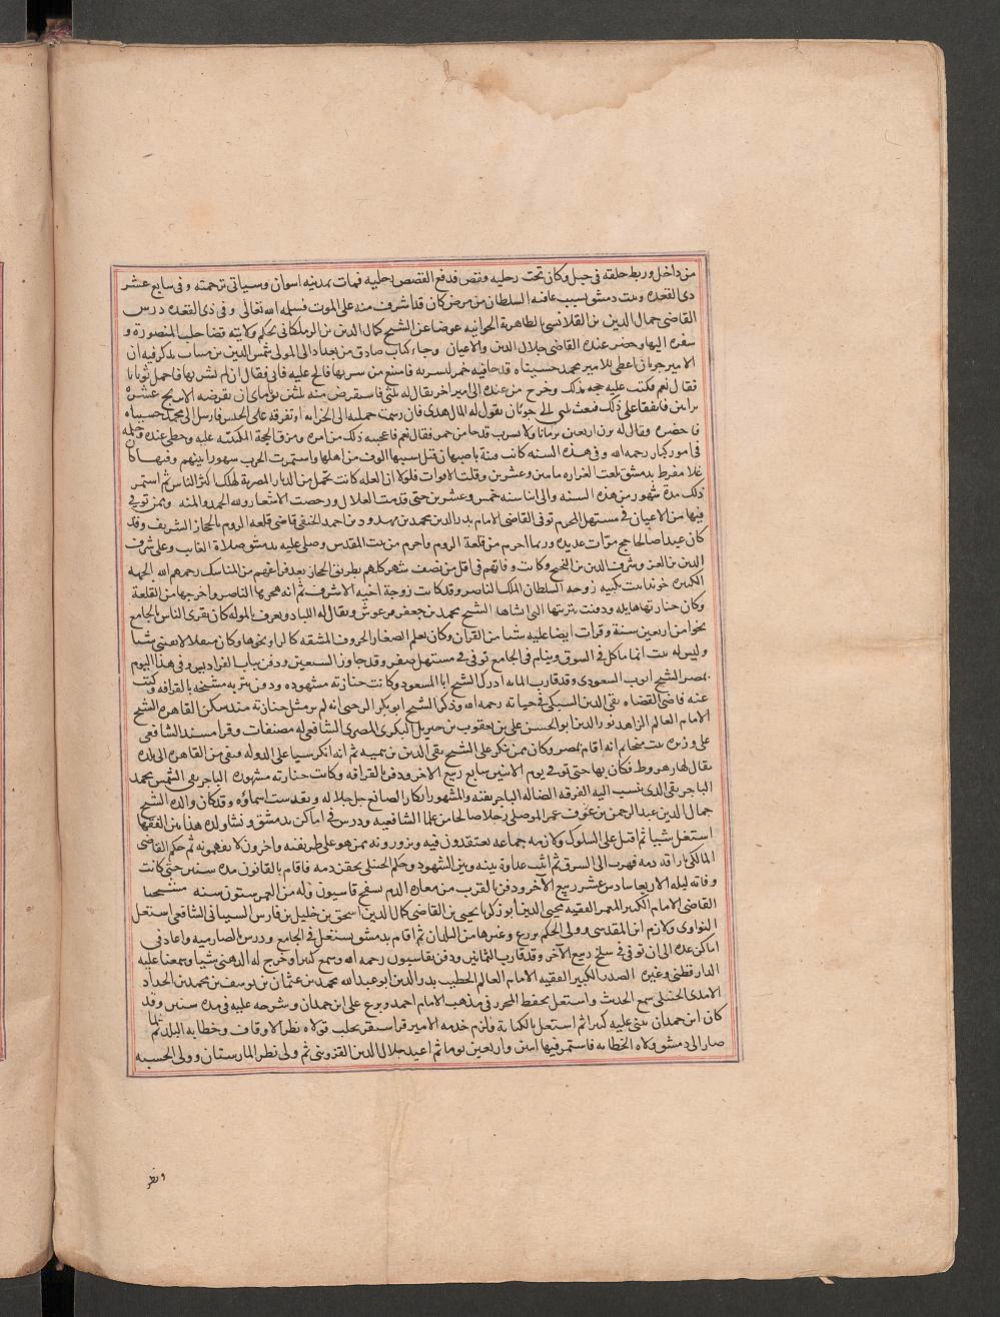 من داخل وربط حلقه في حبل وكان تحت رجليه قفص فدفع القفص برجليه فمات بمدينه اسوان وسياتي ترجمته وفي سابع عشر
ذي القعده زينت دمشق بسبب عافيه السلطان من مرض كان قد اشرف منه على الموت فسلمه الله تعالى وفي ذي القعده درس
القاضي جمال الدين بن القلانسي بالظاهرية الجوانيه عوضا عن الشيخ كمال الدين بن الزملكاني بحكم ولايته قضا حلب المنصورة و
سفره اليها وحضر عنده القاضي جلال الدين والاعيان وجاء كتاب صادق من بغداد الى المولى شمس الدين بن يذكر فيه ان
الامير جوبان اعطى للامير محمد حسيناه قدحا فيه خمر ليشربه فامتنع من شربها فالح عليه فابى فقال ان لم تشربها فاحمل
فقال نعم فكتب عليه حجه بذلك وخرج من عنده الى امير اخر يقال له فاستقرض منه ان يقرضه الا بربح عشره
فاتفقا على ذلك فبعث الى جوبان يقول له المال عندي فان رسمت حمله الى الخزانه او تفرقه على الجند فارسل الى محمد حسيناه
فاحضره وقال له تزن اربعين تومانا ولا تشرب قدحا من خمر فقال نعم فاعجبه ذلك من امره ومزق الحجة المكتتبه عليه وحظي عنده وحكمه
في امور كبار رحمه الله وفي هذه السنه كانت فتنة باصبهان قتل بسببها الوف من اهلها واستمرت الحرب شهورا بينهم وفيها كان
غلا مفرط بدمشق بلغت الغراره مايتين وعشرين وقلت الاقوات فلولا ان الغله كانت تحمل من الديار المصرية لهلك اكثر الناس ثم استمر
ذلك مدة شهور من هذه السنه والى اثنا سنه خمس وعشرين حتى قدمت الغلال ورخصت الاسعار ولله الحمد والمنه وممن توفي
فيها من الاعيان في مستهل المحرم توفي القاضي الامام بدر الدين محمد بن ممدود بن احمد الحنفي قاضي قلعه الروم بالحجاز الشريف وقد
كان عبدا صالحا حج مرات عديده وربما احرم من قلعة الروم واحرم من بيت المقدس وصلي عليه بدمشق صلاة الغايب وعلى شرف
الدين بن العز وشرف الدين بن النجيح وكانت وفاتهم في اقل من نصف شهر كلهم بطريق الحجاز بعد فراغهم من المناسك رحمهم الله الجهه
الكبيره خوند زوجه السلطان الملك الناصر وقد كانت زوجة اخيه الاشرف ثم انه هجرها الناصر واخرجها من القلعة
وكان جنازتها هايله ودفنت بتربتها التي انشاها الشيخ محمد بن جعفر بن فرعوش ويقال له اللباد ويعرف بالموله كان يقرئ الناس بالجامع
نحوا من اربعين سنة وقرات ايضا عليه شيا من القران وكان يعلم الصغار الحروف المشقه كالرا ونحوها وكان متقللا لا يقتني شيا
وليس له بيت انما ياكل في السوق وينام في الجامع توفي في مستهل صفر وقد جاوز السبعين ودفن بباب الفراديس وفي هذا اليوم
بمصر الشيخ ايوب السعودي وقد قارب المايه ادرك الشيخ ابا السعود وكانت جنازته مشهوده ودفن بتربه شيخه بالقرافه وكتب
عنه قاضي القضاه تقي الدين السبكي في حياته رحمه الله وذكر الشيخ ابو بكر الرحبي انه لم ير مثل جنازته منذ سكن القاهره الشيخ
الامام العالم الزاهد نور الدين ابو الحسن علي بن يعقوب بن جبريل البكري المصري الشافعي له مصنفات وقرا مسند الشافعي
على وزيره بنت منجا ثم انه اقام بمصر وكان ممن ينكر على الشيخ تقي الدين بن تيميه ثم انه انكر شيا على الدوله فنفي من القاهره الى بلده
يقال لها دهروط فكان بها حتى توفي يوم الاثنين سابع ربيع الاخر ودفن بالقرافه وكانت جنازته مشهوده الباجربقي الشمس محمد
الباجربقي الذي تنسب اليه الفرقه الضاله الباجربقيه والمشهور انكار الصانع جل جلاله وتقدست اسماؤه وقد كان والده الشيخ
جمال الدين عبد الرحمن بن عمر الموصلي رجلا صالحا من علما الشافعيه ودرس في اماكن بدمشق ونشا ولده هذا بين الفقها
اشتغل شيا ثم اقبل على السلوك ولازمه جماعه يعتقدون فيه ويزورونه ممن هو على طريقته واخرون لا يفهمونه ثم حكم القاضي
المالكي باراقه دمه فهرب الى الشرق ثم اثبت عداوة بينه وبين الشهود وحكم الحنبلي بحقن دمه فاقام بالقابون مدة سنين حتى كانت
وفاته ليله الاربعا سادس عشر ربيع الآخر ودفن بالقرب من مغارة الدم بسفح قاسيون وله من العمر ستون سنه شيخنا
القاضي الامام الكبير المعمر الفقيه محيي الدين ابو زكريا يحيى بن القاضي كمال الدين اسحق بن خليل بن فارس الشيباني الشافعي اشتغل
النواوي ولازم ابن المقدسي وولى الحكم بزرع وغيرها من البلدان ثم اقام بدمشق يشتغل في الجامع ودرس بالصارميه واعاد في
اماكن عدة الى ان توفي في سلخ ربيع الآخر وقد قارب الثمانين ودفن بقاسيون رحمه الله وسمع كثيرا وخرج له الذهبي شيا وسمعنا عليه
الدارقطني وغيره الصدر الكبير الفقيه الامام العالم الخطيب بدر الدين ابو عبد الله محمد بن عثمان بن يوسف بن محمد بن الحداد
الآمدي الحنبلي سمع الحديث واشتغل بحفظ المحرر في مذهب الامام احمد وبرع على ابن حمدان وشرحه عليه في مدة سنين وقد
كان ابن حمدان يثني عليه كثيرا ثم اشتغل بالكتابة ولزم خدمه الامير قراسنقر بحلب فولاه نظر الاوقاف وخطابه البلد ثم لما
صار الى دمشق ولاه الخطابه فاستمر فيها اثنين واربعين يوما ثم اعيد جلال الدين القزويني ثم ولى نظر المارستان وولى الحسبه
ونظر